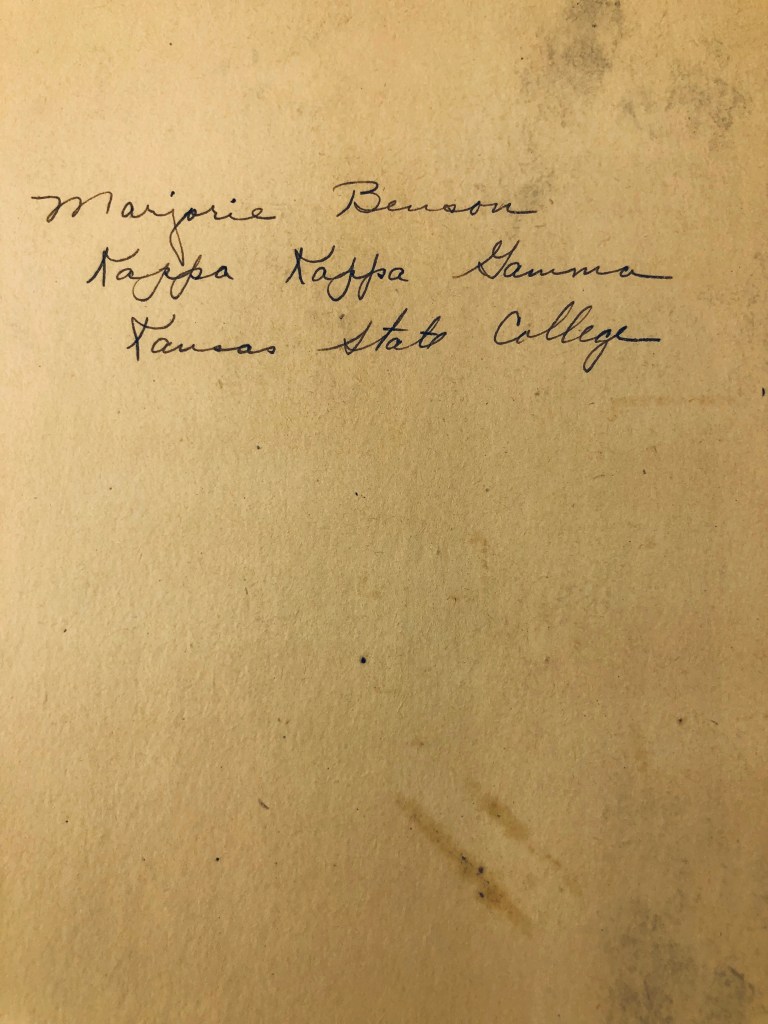 Marjorie Benson
Kappa Kappa Gamma
Kansas State College